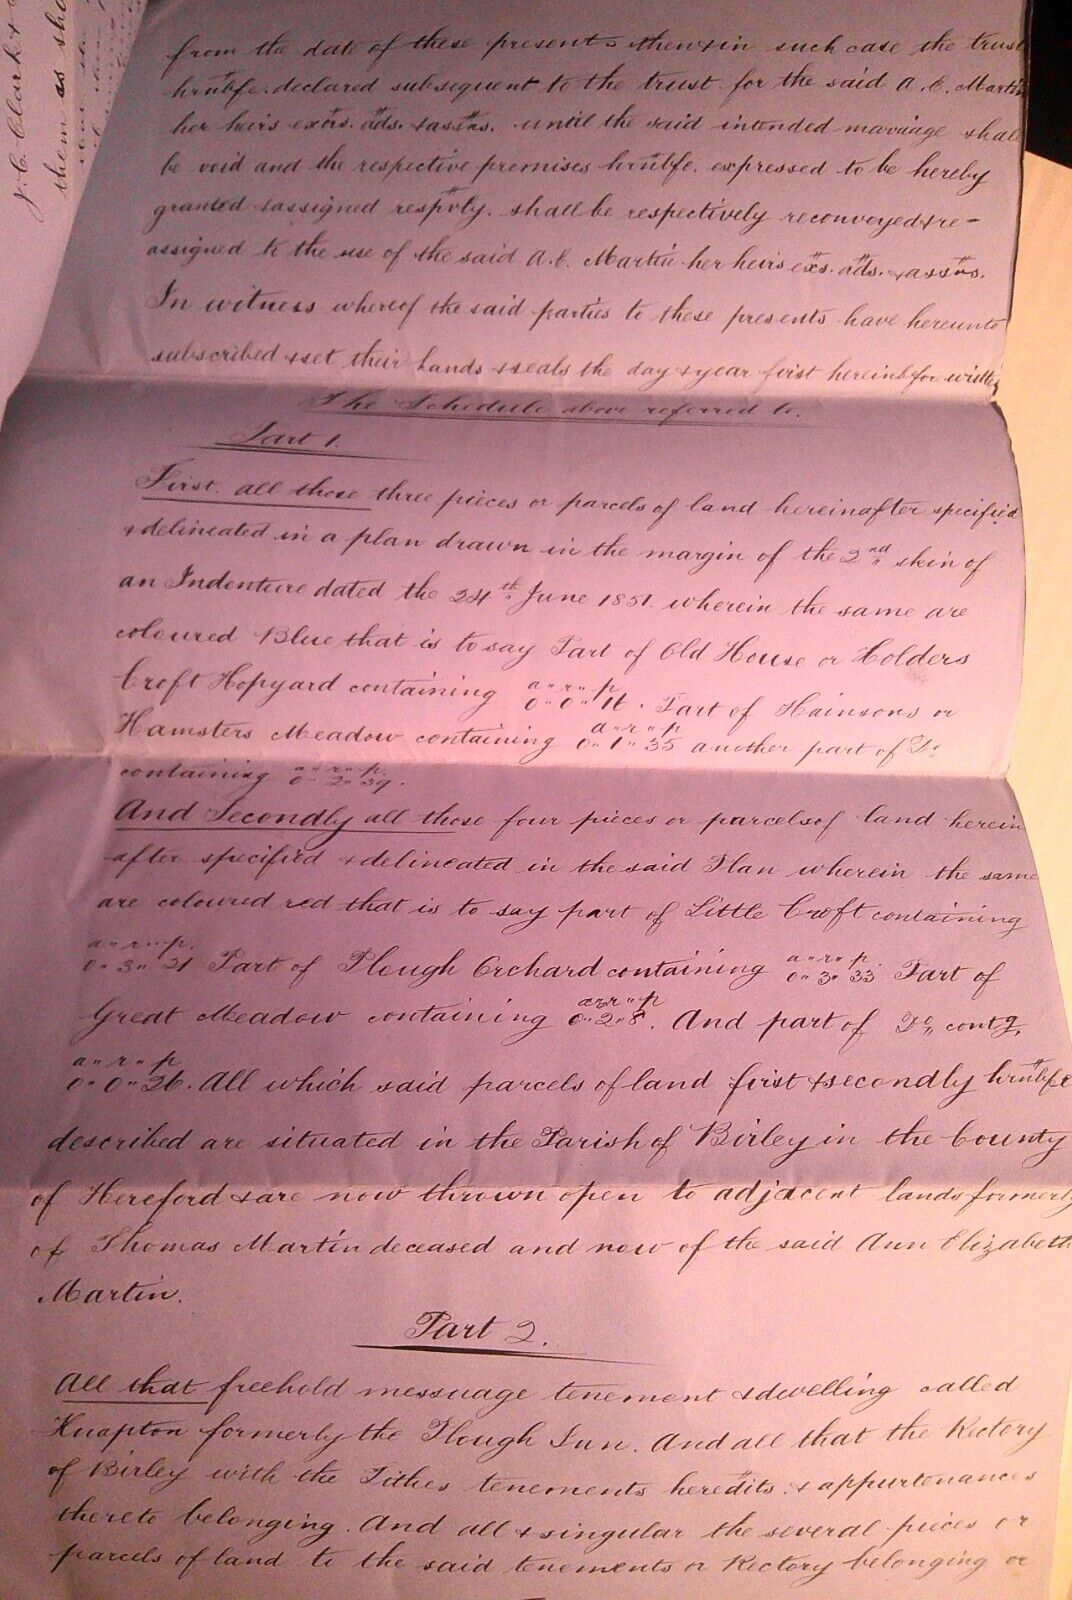 J. C. Clark &
them as sha
from the date of these presents then & in such case the trust
hrnbfe. declared subsequent to the trust for the said A. E. Martin
her heirs exors. ads. & assns. until the said intended marriage shall
be void and the respective premises hrnbfe. expressed to be hereby
granted & assigned respvly. shall be respectively reconveyed & re-
assigned to the use of the said A. E. Martin her heirs exs. ads. & assns.
In witness whereof the said parties to these presents have hereunto
subscribed & set their hands & seals the day & year first hereinbfor written
The Schedule above referred to.
Part 1.
First. all those three pieces or parcels of land hereinafter specified
& delineated in a plan drawn in the margin of the 2nd skin of
an Indenture dated the 24th June 1851. wherein the same are
coloured Blue that is to say Part of Old House or Holders
Croft Hopyard containing a" r" p 0" 0" 16. Part of Hainsons or
Hamsters Meadow containing a" r" p 0" 1" 35 another part of Do
containing a" r" p. 0" 2" 39.
And Secondly all those four pieces or parcels of land herein
after specified & delineated in the said Plan wherein the same
are coloured red that is to say part of Little Croft containing
a" r" p. 0" 3" 21 Part of Plough Orchard containing a" r" p. 0" 3" 33. Part of
Great Meadow containing a" r" p 0" 2" 8. And part of Do" contg.
a" r" p 0" 0" 26. All which said parcels of land first & secondly hrnbfe
described are situated in the Parish of Birley in the County
of Hereford & are now thrown open to adjacent lands formerly
of Thomas Martin deceased and now of the said Ann Elizabeth
Martin.
Part 2.
All that freehold messuage tenement & dwelling called
Knapton formerly the Plough Inn. And all that the Rectory
of Birley with the Tithes tenements heredits. & appurtenances
thereto belonging. And all & singular the several pieces or
parcels of land to the said tenements or Rectory belonging or